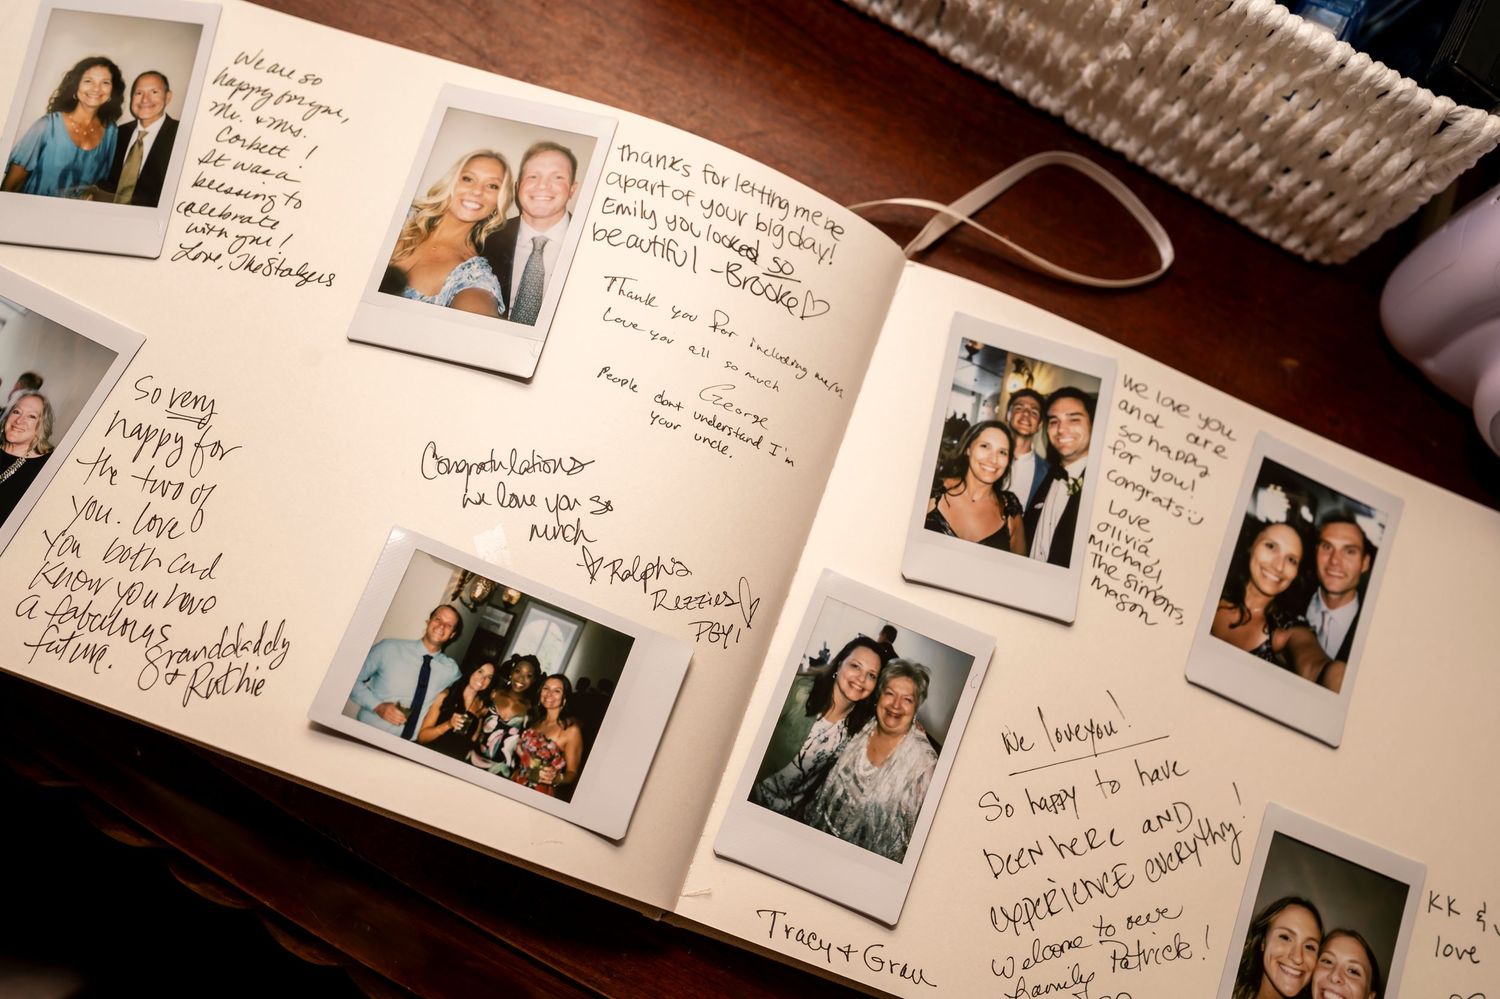 We are so
happy for you,
Mr. & Mrs.
Corbett!
It was a
blessing to
celebrate
with you!
Love, The
So very
happy for
the two of
you. Love
you both and
Know you have
a fabulous
future. Granddaddy
+ Ruthie
Thanks for letting me be
apart of your big day!
Emily you looked so
beautiful - Brooke ♡
Thank you for including me/us
Love you all so much
George
People dont understand I'm
your uncle.
Congratulations
we love you so
much
♡ Ralphis
Rezzies ♡
PGY1
We love you
and are
so happy
for you!
Congrats :)
Love,
Olivia,
Michael,
The Simons,
Mason
Tracy + Gran
We love you!
So happy to have
been here AND
EXPERIENCE everythg!
Welcome to
family Patrick!
KK &
love